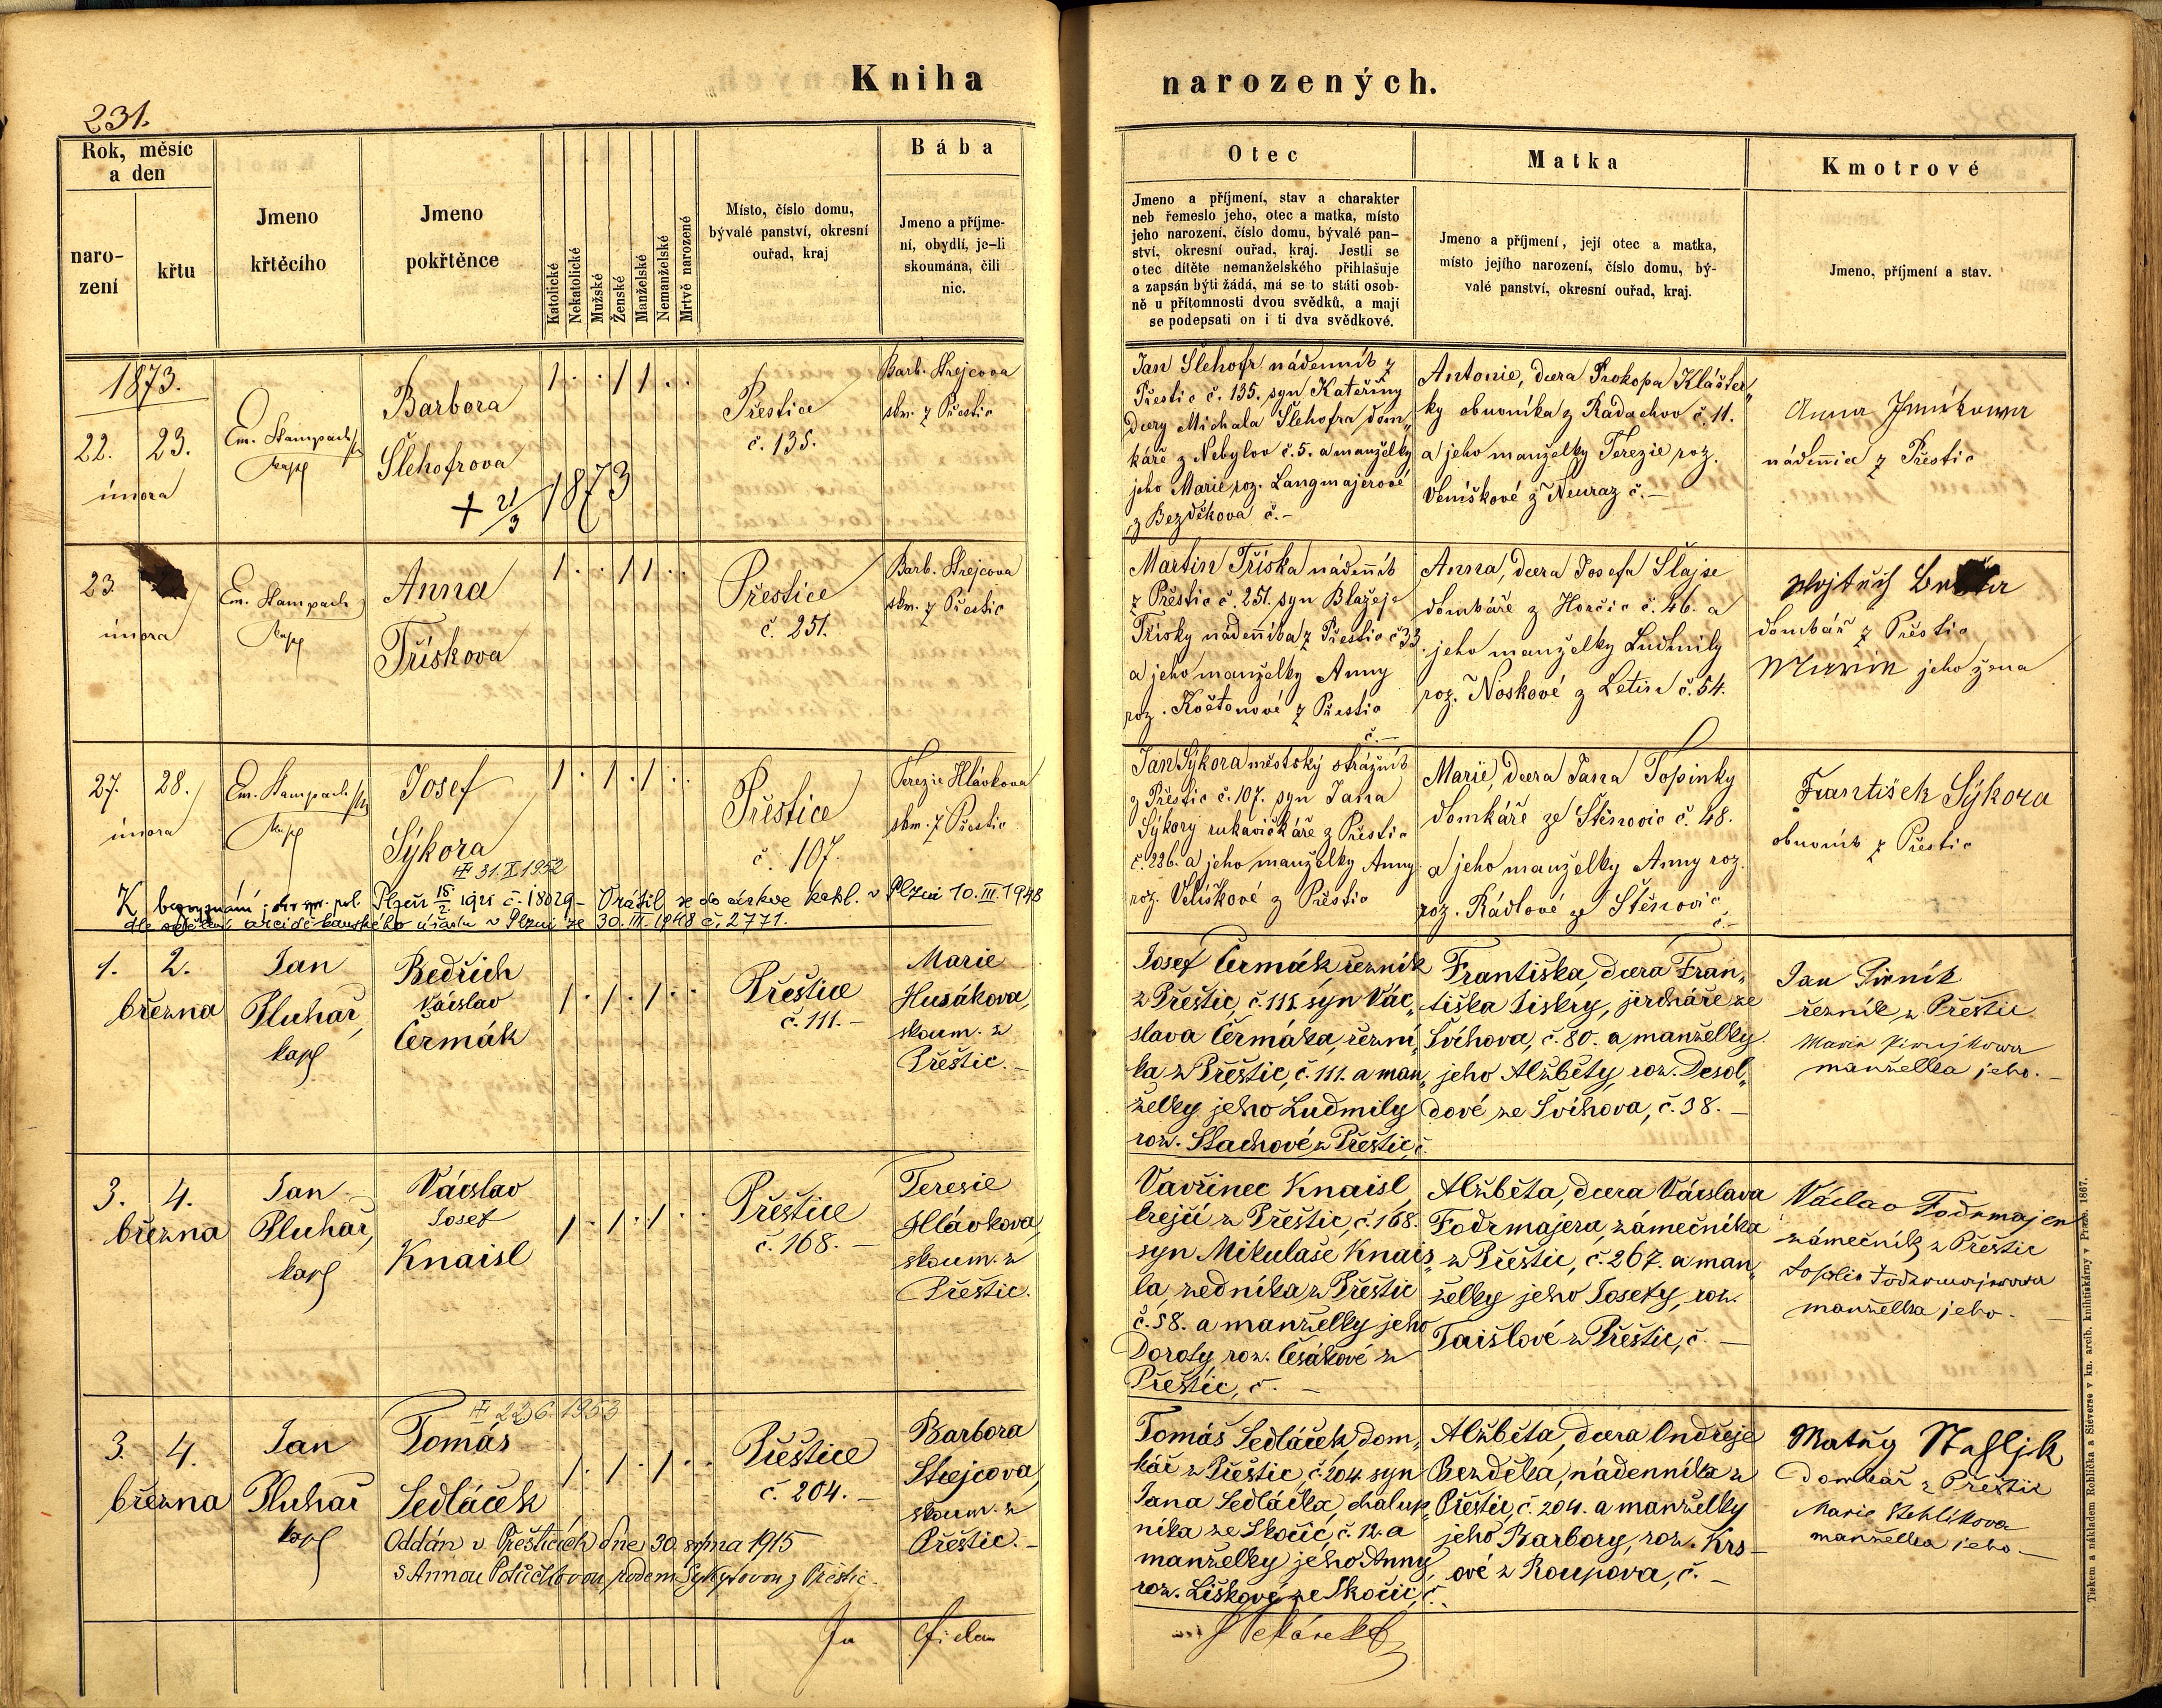 Kniha narozených.
231.
Rok, měsíc
a den
naro-
zení
křtu
Jmeno
křtěcího
Jmeno
pokřtěnce
Katolické
Nekatolické
Mužské
Ženské
Manželské
Nemanželské
Mrtvě narozené
Místo, číslo domu,
bývalé panství, okresní
ouřad, kraj
Bába
Jmeno a příjme-
ní, obydlí, je-li
skoumána, čili
nic.
Otec
Jmeno a příjmení, stav a charakter
neb řemeslo jeho, otec a matka, místo
jeho narození, číslo domu, bývalé pan-
ství, okresní ouřad, kraj. Jestli se
otec dítěte nemanželského přihlašuje
a zapsán býti žádá, má se to státi osob-
ně u přítomnosti dvou svědků, a mají
se podepsati on i ti dva svědkové.
Matka
Jmeno a příjmení, její otec a matka,
místo jejího narození, číslo domu, bý-
valé panství, okresní ouřad, kraj.
Kmotrové
Jmeno, příjmení a stav.
1873.
22. 23.
února
Em. Stampach
kapl
Barbora
Šlehofrova
+ 21/3 1873
1 . . 1 1 . .
Přestice
č. 135.
Barb. Strejcova
skm. z Přestic
Jan Šlehofr nádenník z
Přestic č. 135. syn Kateřiny
dcery Michala Šlehofra dom„
káře z Nebylov č. 5. a manželky
jeho Marie roz. Langmajerové
z Bezděkova č. –
Antonie, dcera Prokopa Klášter„
ky obuvníka z Radachov č. 11.
a jeho manželky Terezie roz.
Veníškové z Neuraz č. –
Anna
nádennice z Přestic
23.
února
Em. Stampach
kapl
Anna
Třískova
1 . . 1 1 . .
Přestice
č. 251.
Barb. Strejcova
skm. z Přestic
Martin Tříska nádenník
z Přestic č. 251. syn Blažeje
Třísky nádenníka z Přestic č 33.
a jeho manželky Anny
roz. Koštonové z Přestic
č. –
Anna, dcera Josefa Šlajse
domkáře z Horčic č. 46. a
jeho manželky Ludmily
roz. Noskové z Letin č. 54.
Wojtěch
domkář z Přestic
jeho žena
27. 28.
února
Em. Stampach
kapl
Josef
Sýkora
31.X.1952
1 . 1 . 1 . .
Přestice
č. 107.
Terezie Hlávkova
skm. z Přestic
K bezvyznání pol. Plzeň 15/2 1921 č. 18029 – Vrátil se do církve katol. v Plzni 10.III.1948
dle sdělení arciděkanského úřadu v Plzni ze 30.III.1948 č. 2771.
Jan Sýkora městský strážník
z Přestic č. 107. syn Jana
Sýkory rukavičkáře z Přestic
č. 226. a jeho manželky Anny
roz. Velíškové z Přestic
Marie, dcera Jana Topinky
domkáře ze Stěnovic č. 48.
a jeho manželky Anny roz.
roz. Rádlové ze Stěnovic
č. –
František Sýkora
obuvník z Přestic
1. 2.
března
Jan
Pluhař,
kapl
Bedřich
Václav
Čermák
1 . 1 . 1 . .
Přestice
č. 111. –
Marie
Husákova,
skoum. z
Přeštic. –
Josef Čermák řezník
z Přeštic, č. 111. syn Vác„
slava Čermáka, řezní„
ka z Přeštic, č. 111. a man„
želky jeho Ludmily
roz. Stachové z Přeštic, č.
Františka, dcera Fran„
tiška Jiskry, jircháře ze
Švihova, č. 80. a manželky
jeho Alžběty, roz. Desol„
dové ze Švihova, č. 38. –
Jan Pirník
řezník z Přeštic.
manželka jeho. –
3. 4.
března
Jan
Pluhař,
kapl
Václav
Josef
Knaisl
1 . 1 . 1 . .
Přeštice
č. 168. –
Teresie
Hlávkova,
skoum. z
Přeštic.
Vavřinec Knaisl,
krejčí z Přeštic, č. 168.
syn Mikuláše Knais„
la, zedníka z Přeštic
č. 58. a manželky jeho
Doroty, roz. Česákové z
Přeštic, č. –
Alžběta, dcera Václava
Fodrmajera, zámečníka
z Přeštic, č. 267. a man„
želky jeho Josefy, roz.
Taislové z Přeštic, č. –
Václav Fodrmajer
zámečník z Přeštic
manželka jeho. –
3. 4.
března
Jan
Pluhař
kapl
23.6.1953
Tomáš
Sedláček
1 . 1 . 1 . .
Přeštice
č. 204. –
Barbora
Strejcova,
skoum. z
Přeštic. –
Oddán v Přešticích dne 30. srpna 1915
s Annou rodem z Přeštic.
Tomáš Sedláček, dom„
kář z Přeštic, č. 204. syn
Jana Sedláčka, chalup„
níka ze Skočic, č. 12. a
manželky jeho Anny,
roz. Liškové ze Skočic, č.
Alžběta, dcera Ondřeje
Bezděka, nádenníka z
Přeštic, č. 204. a manželky
jeho Barbory, roz. Krs–
ové z Roupova, č. –
Matěg Stehljk
Domkář z Přeštic
Marie Stehlíkova
manželka jeho –
Tiskem a nákladem Rohlíčka & Sieverse v kn. arcib. knihtiskárny v Praze. 1867.